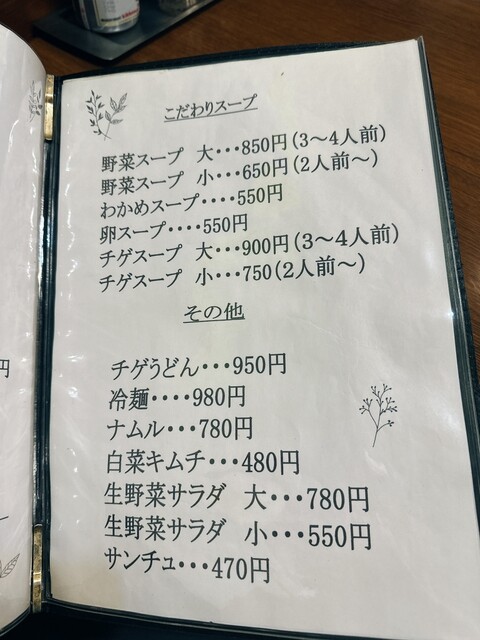 こだわりスープ
野菜スープ 大・・・850円(3〜4人前)
野菜スープ 小・・・650円(2人前〜)
わかめスープ・・・・550円
卵スープ・・・・550円
チゲスープ 大・・・900円(3〜4人前)
チゲスープ 小・・・750(2人前〜)
その他
チゲうどん・・・950円
冷麺・・・・980円
ナムル・・・780円
白菜キムチ・・・480円
生野菜サラダ 大・・・780円
生野菜サラダ 小・・・550円
サンチュ・・・470円
円